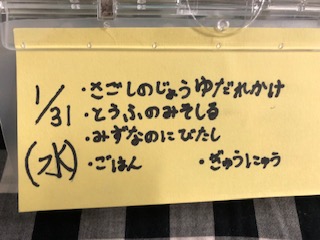 1/31
(水)
・さごしのじょうゆだれかけ
・とうふのみそしる
・みずなのにびたし
・ごはん ・ぎゅうにゅう